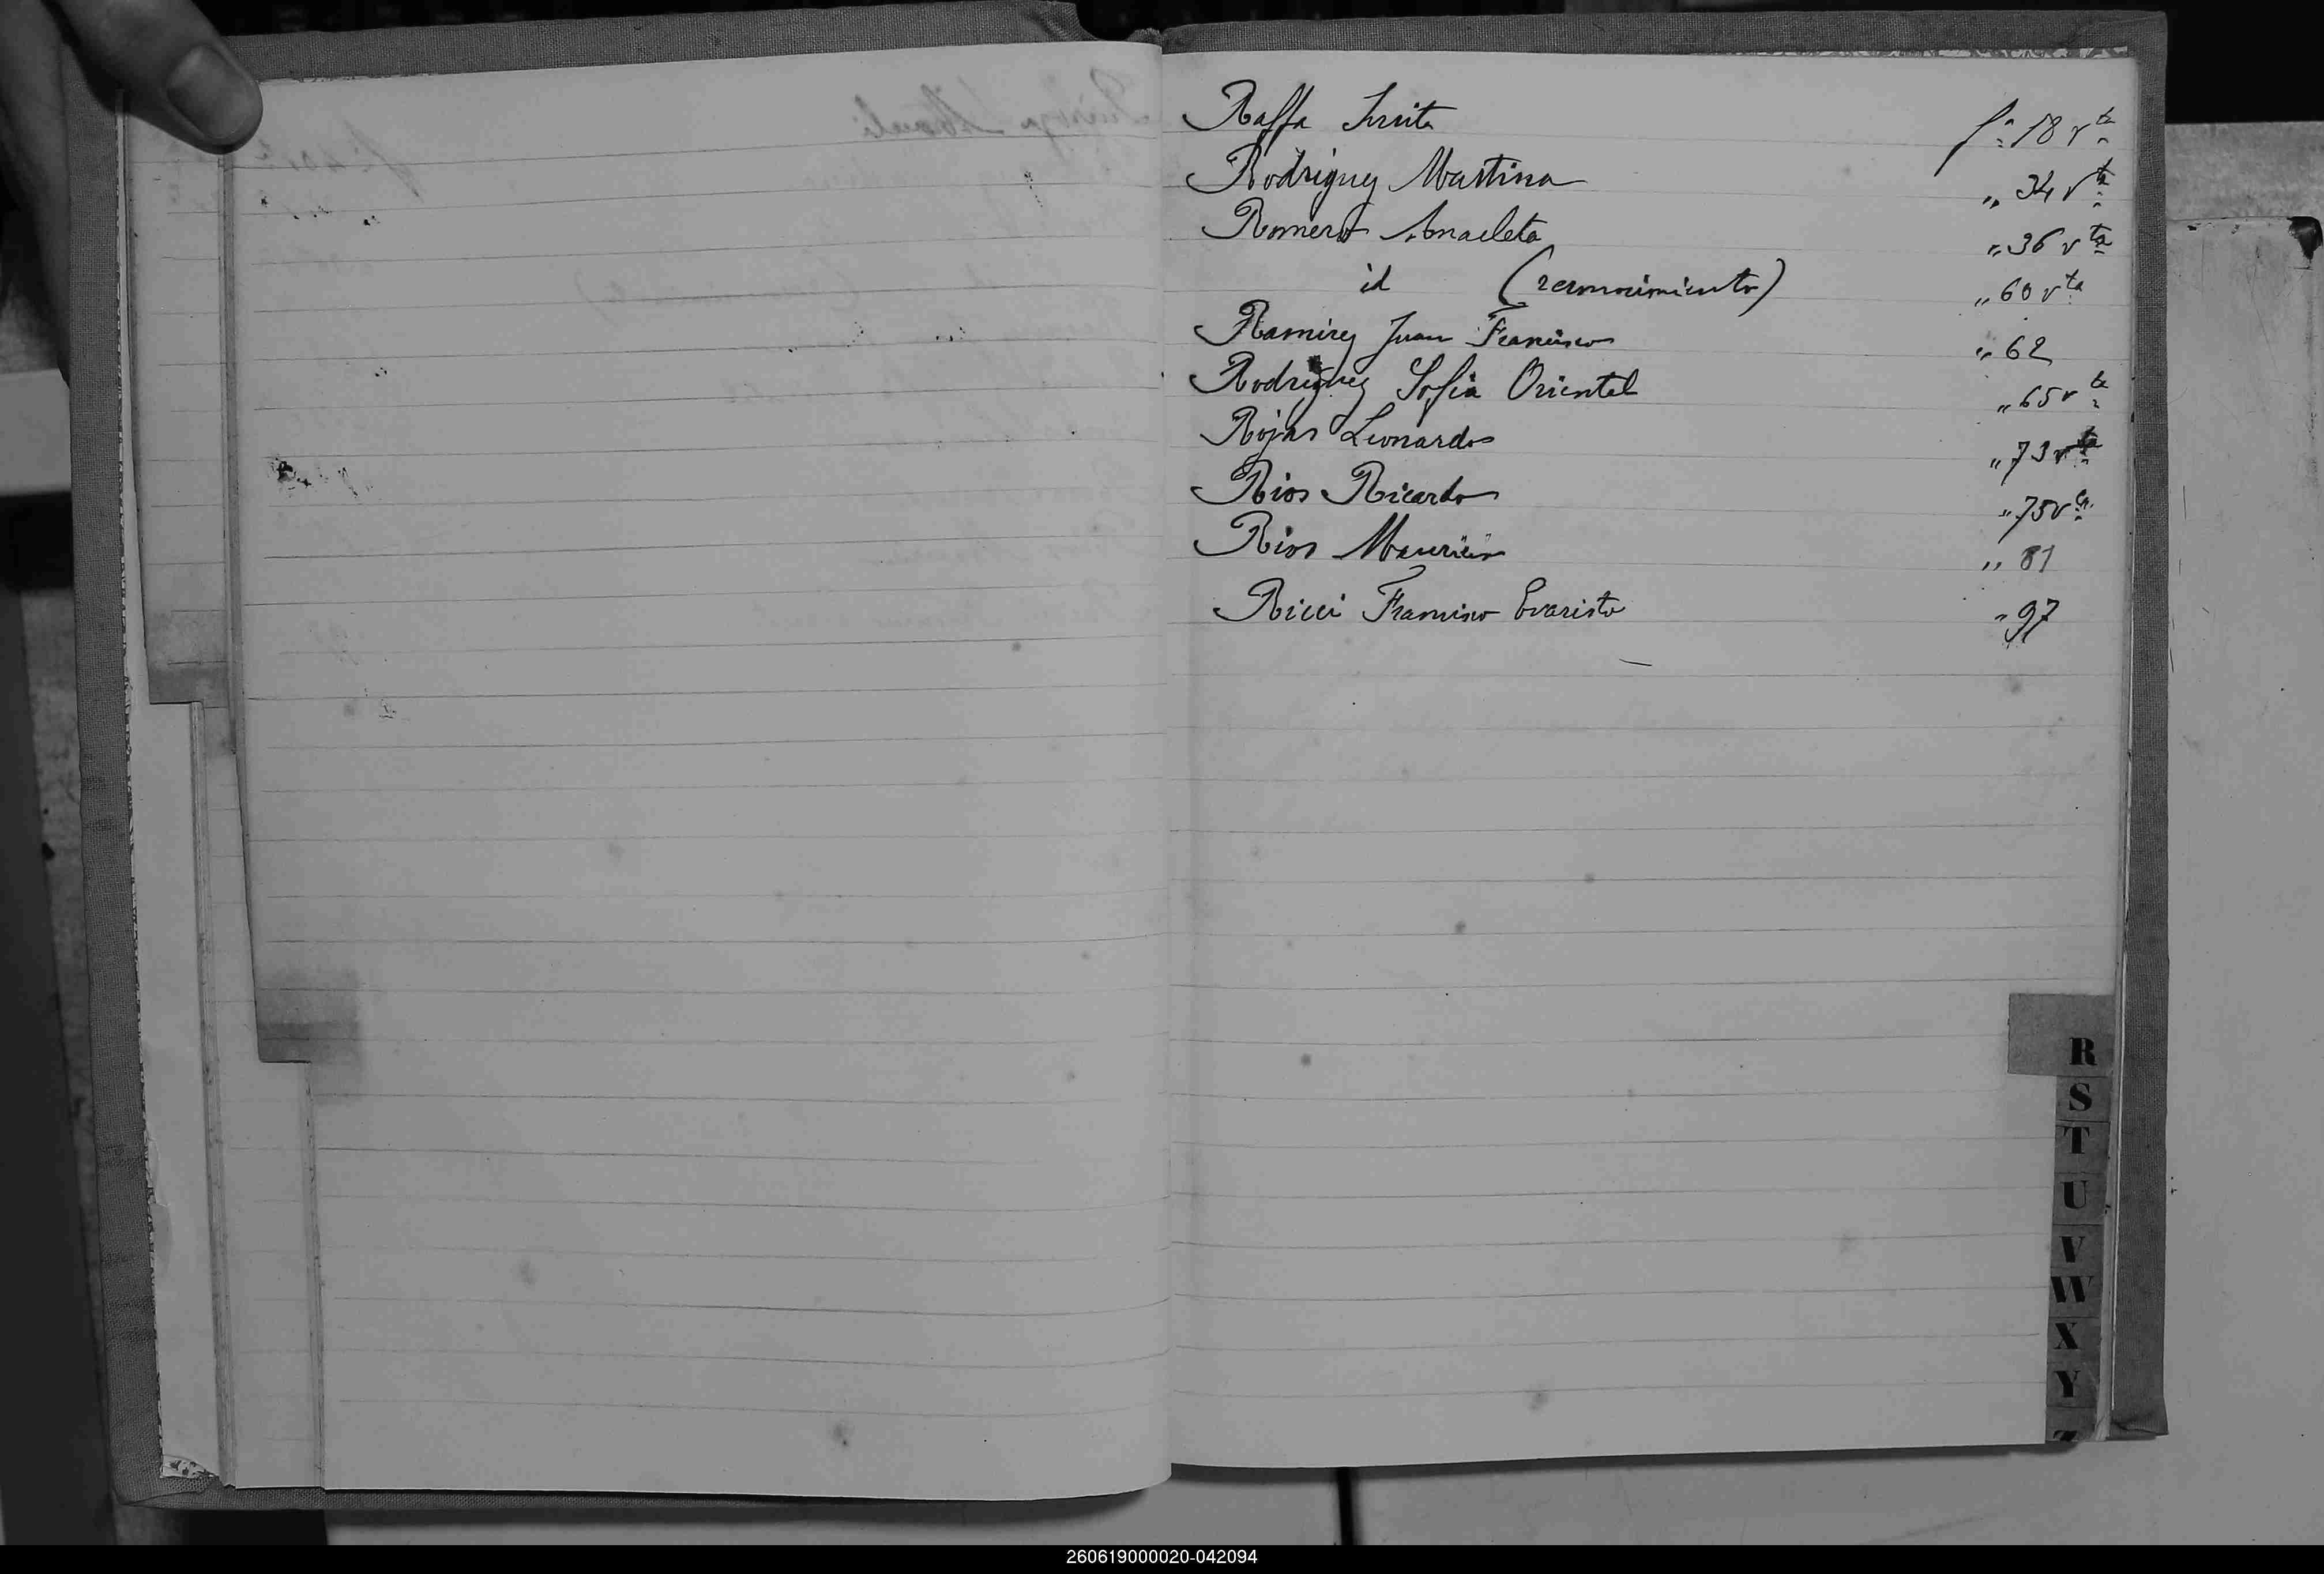 Raffa f° 18 vta
Rodriguez Martina „ 34 vta
Romero Anacleta „ 36 vta
id (reconocimiento) „ 60 vta
Ramirez Juan Francisco „ 62
Rodriguez Sofia Oriental „ 65 vta
Rojas Leonardo „ 73 vta
Rios Ricardo „ 75 vta
Rios Mauricio „ 81
Ricci Francisco Evaristo „ 97
R
S
T
U
V
W
X
Y
Z
260619000020-042094